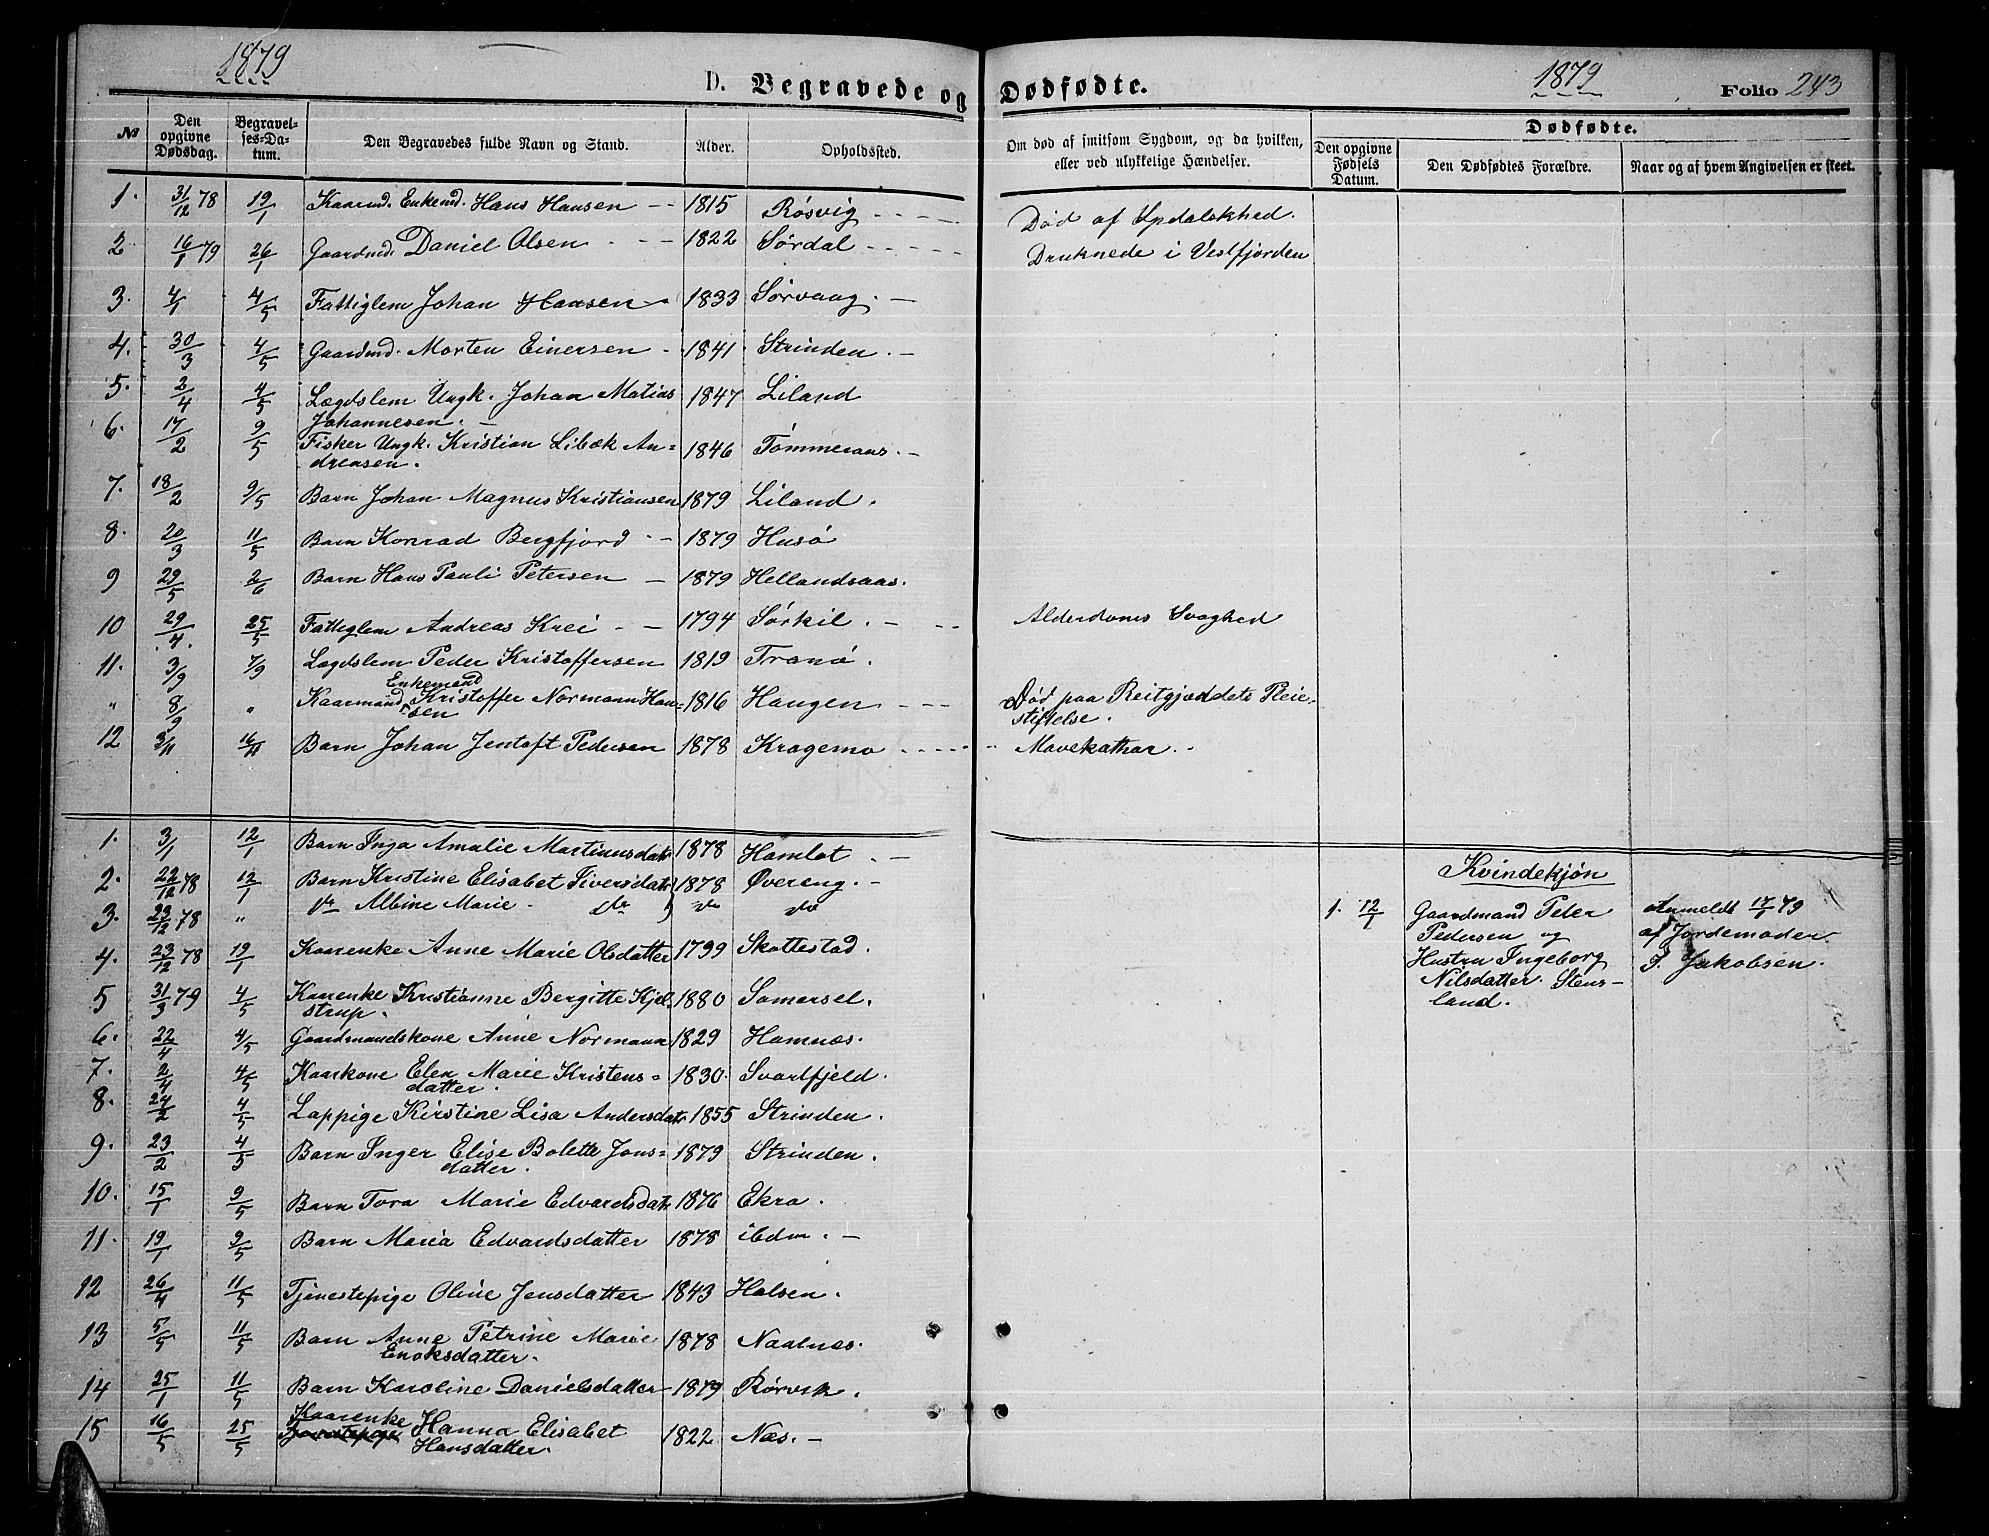 1879
D. Begravede og Dødfødte.
1879
Folio 243
No
Den opgivne Dødsdag.
Begravelses-Datum.
Den Begravedes fulde Navn og Stand.
Alder.
Opholdssted.
Om død af smitsom Sygdom, og da hvilken, eller ved ulykkelige Hændelser.
Dødfødte.
Den opgivne Fødsels Datum.
Den Dødfødtes Forældre.
Naar og af hvem Angivelsen er skeet.
1. 31/12 78 19/1 Kaarmd. Enkemd. Hans Hansen 1815 Røsvig Død af Spedalskhed.
2 16/1 79 26/1 Gaardmd. Daniel Olsen 1822 Sørdal Druknede i Vestfjorden
3. 4/1 4/5 Fattiglem Johan Hansen 1833 Sørvaag.
4. 30/3 4/5 Gaardmd. Morten Einersen 1841 Strinden.
5. 2/4 4/5 Lægdslem Ungk. Johan Matias 1847 Liland
Johannesen.
6. 17/2 9/5 Fisker Ungk. Kristian Libæk An= 1846 Tømmeraas.
dreasen.
7. 18/2 9/5 Barn Johan Magnus Kristiansen 1879 Liland.
8. 20/3 11/5 Barn Konrad Bergfjord 1879 Husø
9 29/5 2/6 Barn Hans Pauli Petersen 1879 Hellandsaas.
10 29/4. 25/5 Fattiglem Andreas Krei 1794 Sørkil. Alderdoms Svaghed
11. 3/9 7/9 Lægdslem Peder Kristoffersen 1819 Tranø.
Enkemand
" 8/9 " Kaarmand Kristoffer Normann Han= 1816 Haugen Død paa Reitgjærdets Pleie-
sen stiftelse.
12 3/11 16/11 Barn Johan Jentoft Pedersen 1878 Kragemo Mavekathar.
1. 3/1 12/1 Barn Inga Amalie Martinusdatr 1878 Hamlot.
2. 22/12 78 12/1 Barn Kristine Elisabet Siversdatr 1878 Øvereng.
3. 23/12 78 " do Albine Marie do do do
4. 23/12 78 19/1 Kaarenke Anne Marie Olsdatter 1799 Skottestad.
5 31/3 79 4/5 Kaarenke Kristianne Bergitte Kjel- 1880 Somersel.
strup.
6. 22/4 4/5 Gaardmandskone Anne Normann 1829 Hamnæs.
7. 2/4 4/5 Kaarkone Elen Marie Kristens= 1830. Svartfjeld.
datter.
8. 24/2 4/5 Lappige Kirstine Lisa Andersdatr. 1855 Strinden.
9. 23/2 4/5 Barn Inger Elise Bolette Jons= 1879 Strinden.
datter.
10. 15/1 9/5 Barn Tora Marie Edvardsdatr 1876 Ekra.
11. 19/1 9/5 Barn Maria Edvardsdatter 1878 ibdm.
12 26/4 11/5 Tjenestepige Oline Jensdatter 1843 Holsen.
13 5/5 11/5 Barn Anne Petrine Marie 1878 Naalnæs.
Enoksdatter.
14 25/1 11/5 Barn Karoline Danielsdatter 1879 Rørvik.
Kaarenke
15 16/5 25/5 Tjenestepige Hanna Elisabet 1822 Næs.
Hansdatter.
Kvindekjøn
1. 12/1 Gaardmand Peter Anmeldt 17/1 79
Pedersen og af Jordemoder
Hustru Ingeborg P. Jakobsen.
Nilsdatter. Stens-
land.